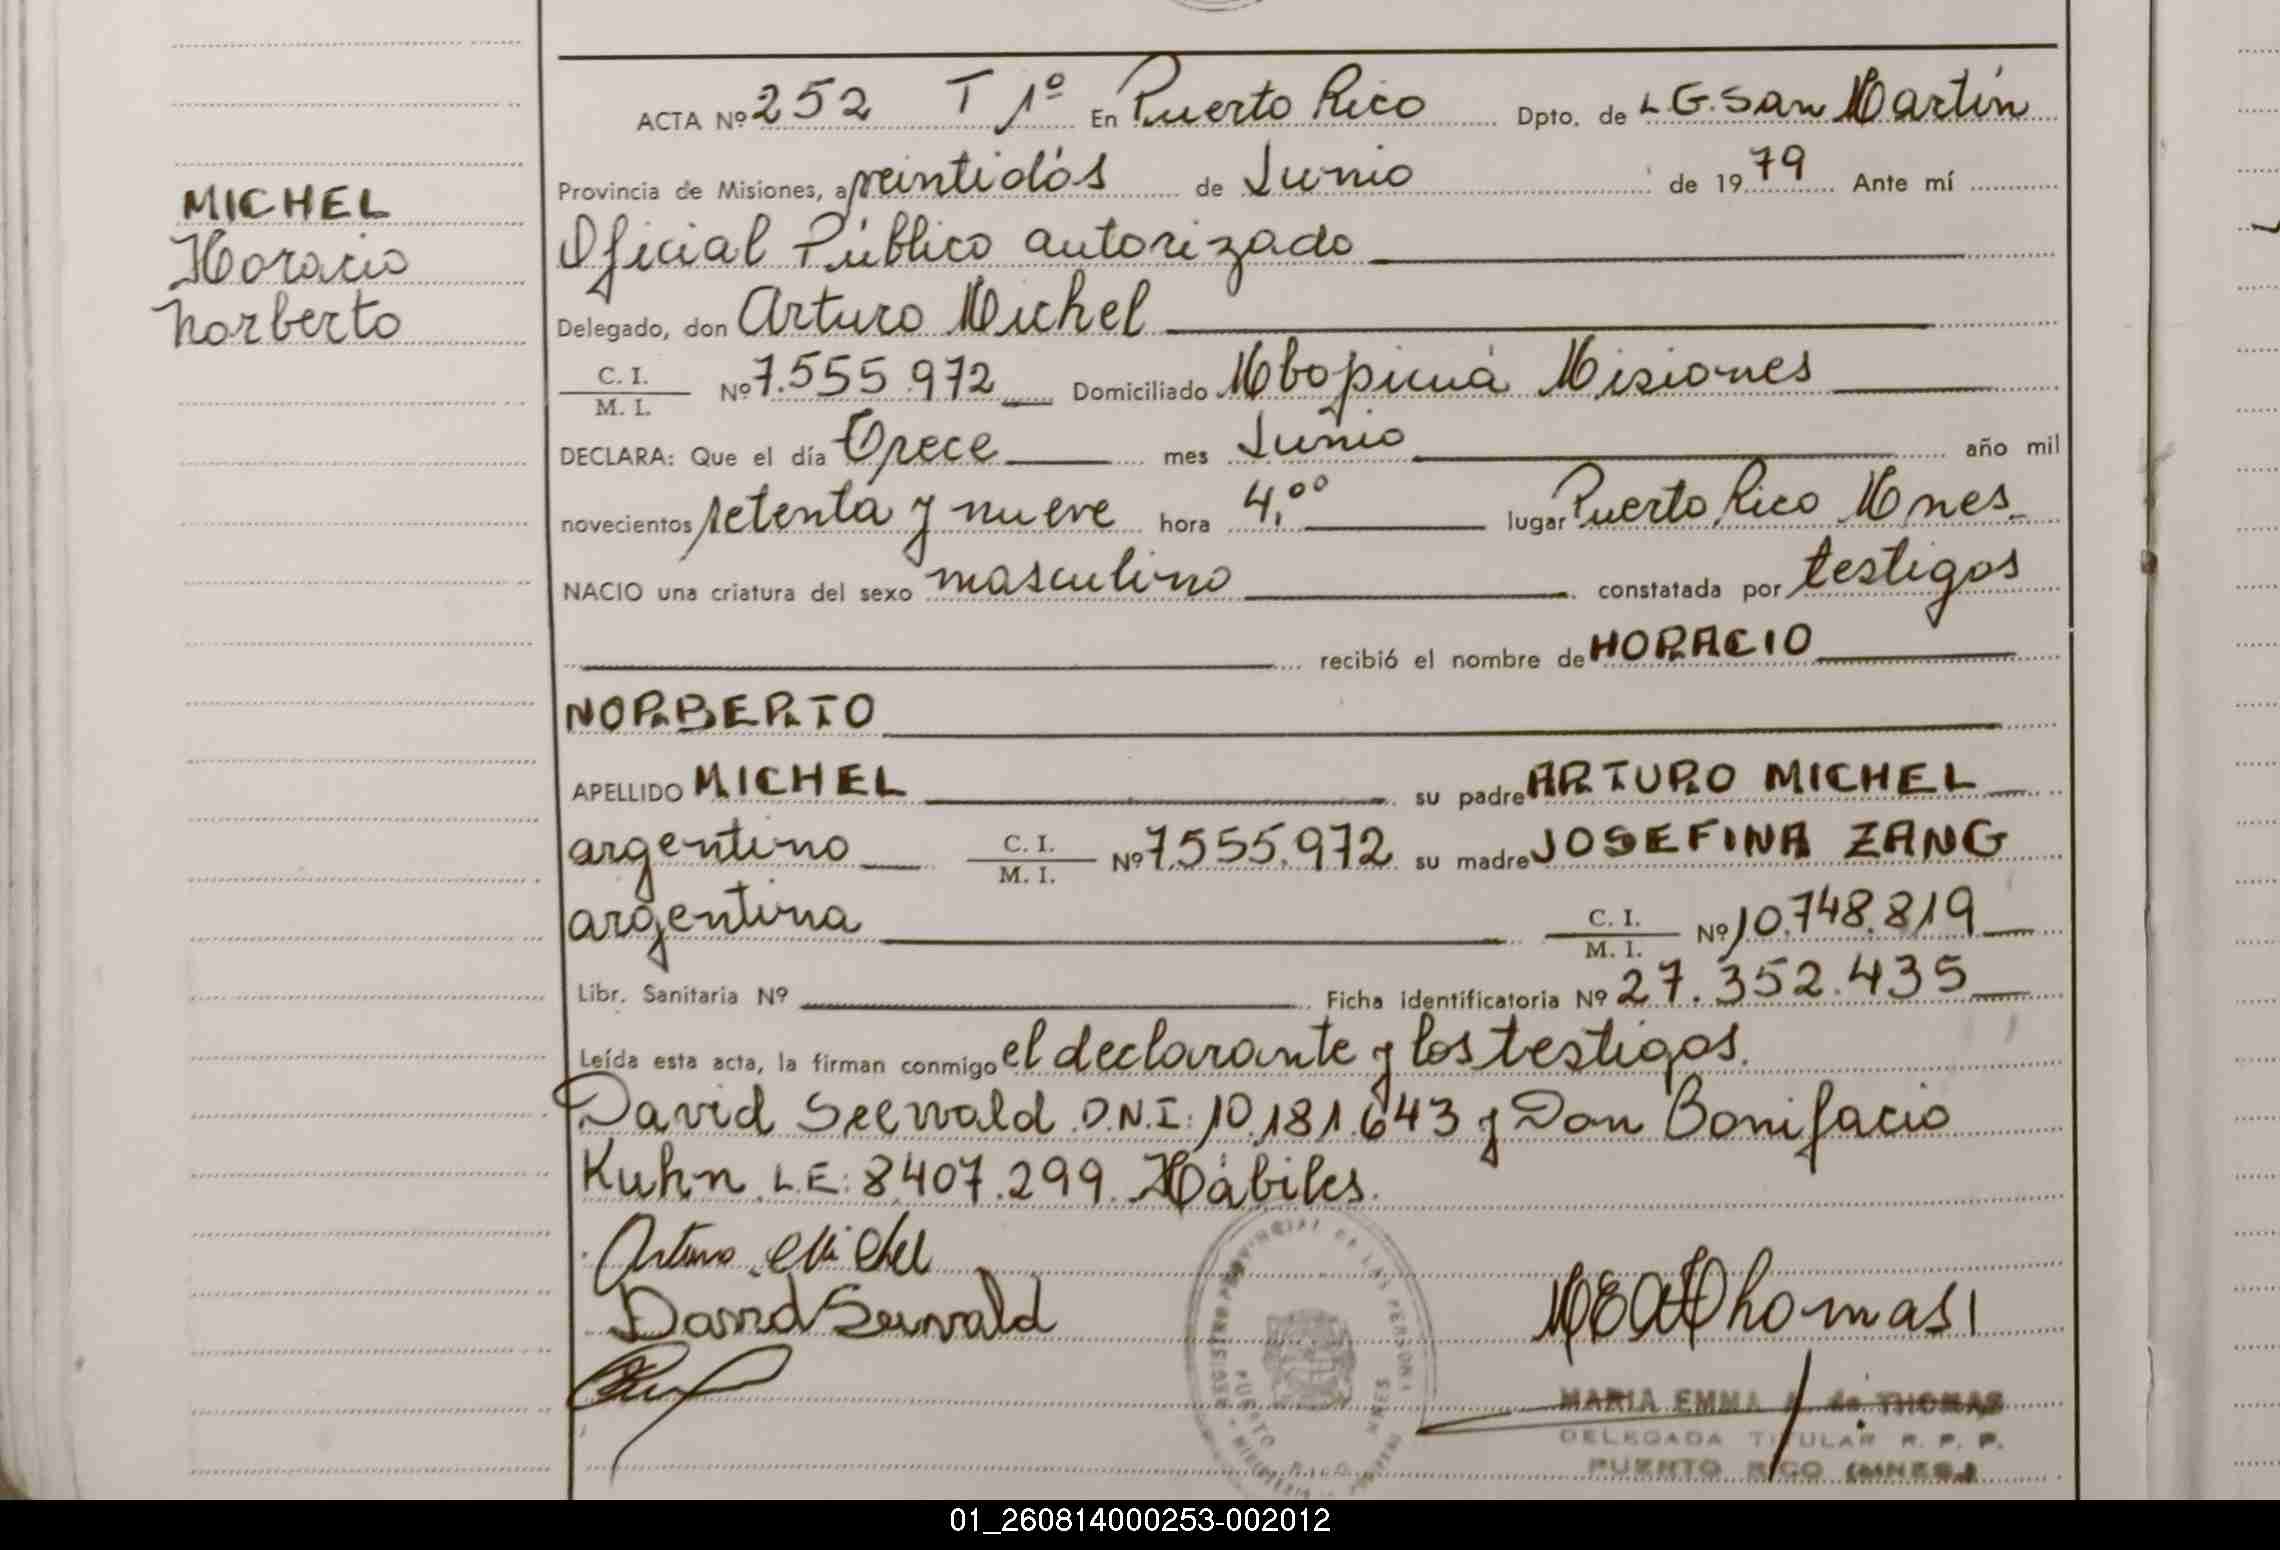 MICHEL
Horacio
Norberto
ACTA Nº 252 T 1º En Puerto Rico Dpto. de L.G. San Martín
Provincia de Misiones, a veintidós de Junio de 1979 Ante mí
Oficial Público autorizado
Delegado, don Arturo Michel
C. I.
M. I.
Nº 7.555.972 Domiciliado Mbopicuá Misiones
DECLARA: Que el día Trece mes Junio año mil
novecientos setenta y nueve hora 4,00 lugar Puerto Rico Mnes
NACIO una criatura del sexo masculino constatada por testigos
recibió el nombre de HORACIO
NORBERTO
APELLIDO MICHEL su padre ARTURO MICHEL
argentino C. I. M. I. Nº 7.555.972 su madre JOSEFINA ZANG
argentina C. I. M. I. Nº 10.748.819
Libr. Sanitaria Nº Ficha identificatoria Nº 27.352.435
Leída esta acta, la firman conmigo el declarante y los testigos.
David Seewald D.N.I: 10.181.643 y Don Bonifacio
Kuhn L.E: 8.407.299. Hábiles.
Arturo Michel
David Seewald
REGISTRO PROVINCIAL DE LAS PERSONAS
PUERTO RICO MNES
MARIA EMMA A. de THOMAS
DELEGADA TITULAR R. P. P.
PUERTO RICO (MNES.)
01_260814000253-002012